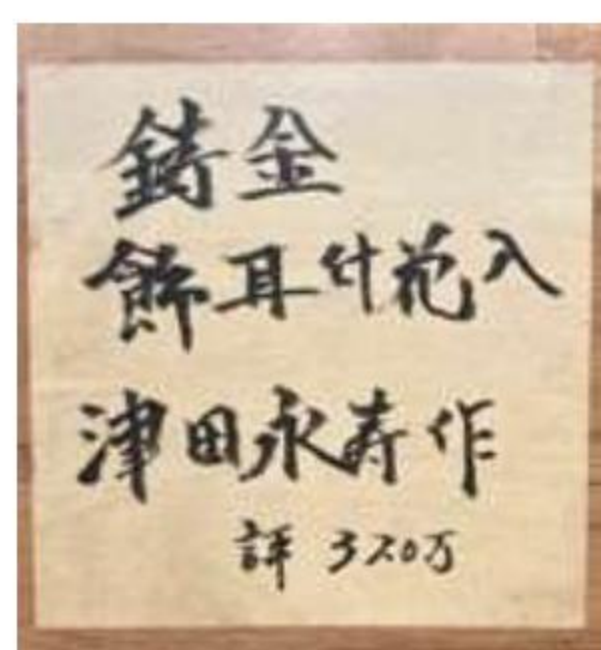 鋳金
飾耳付花入
津田永寿作
評 320万